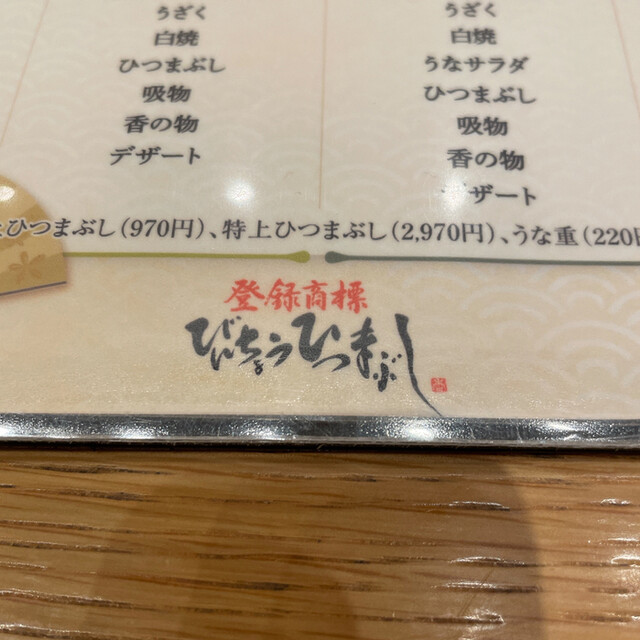 うざく
白焼
ひつまぶし
吸物
香の物
デザート
うざく
白焼
うなサラダ
ひつまぶし
吸物
香の物
デザート
ひつまぶし（970円）、特上ひつまぶし（2,970円）、うな重（220円
登録商標
びんちょうひつまぶし